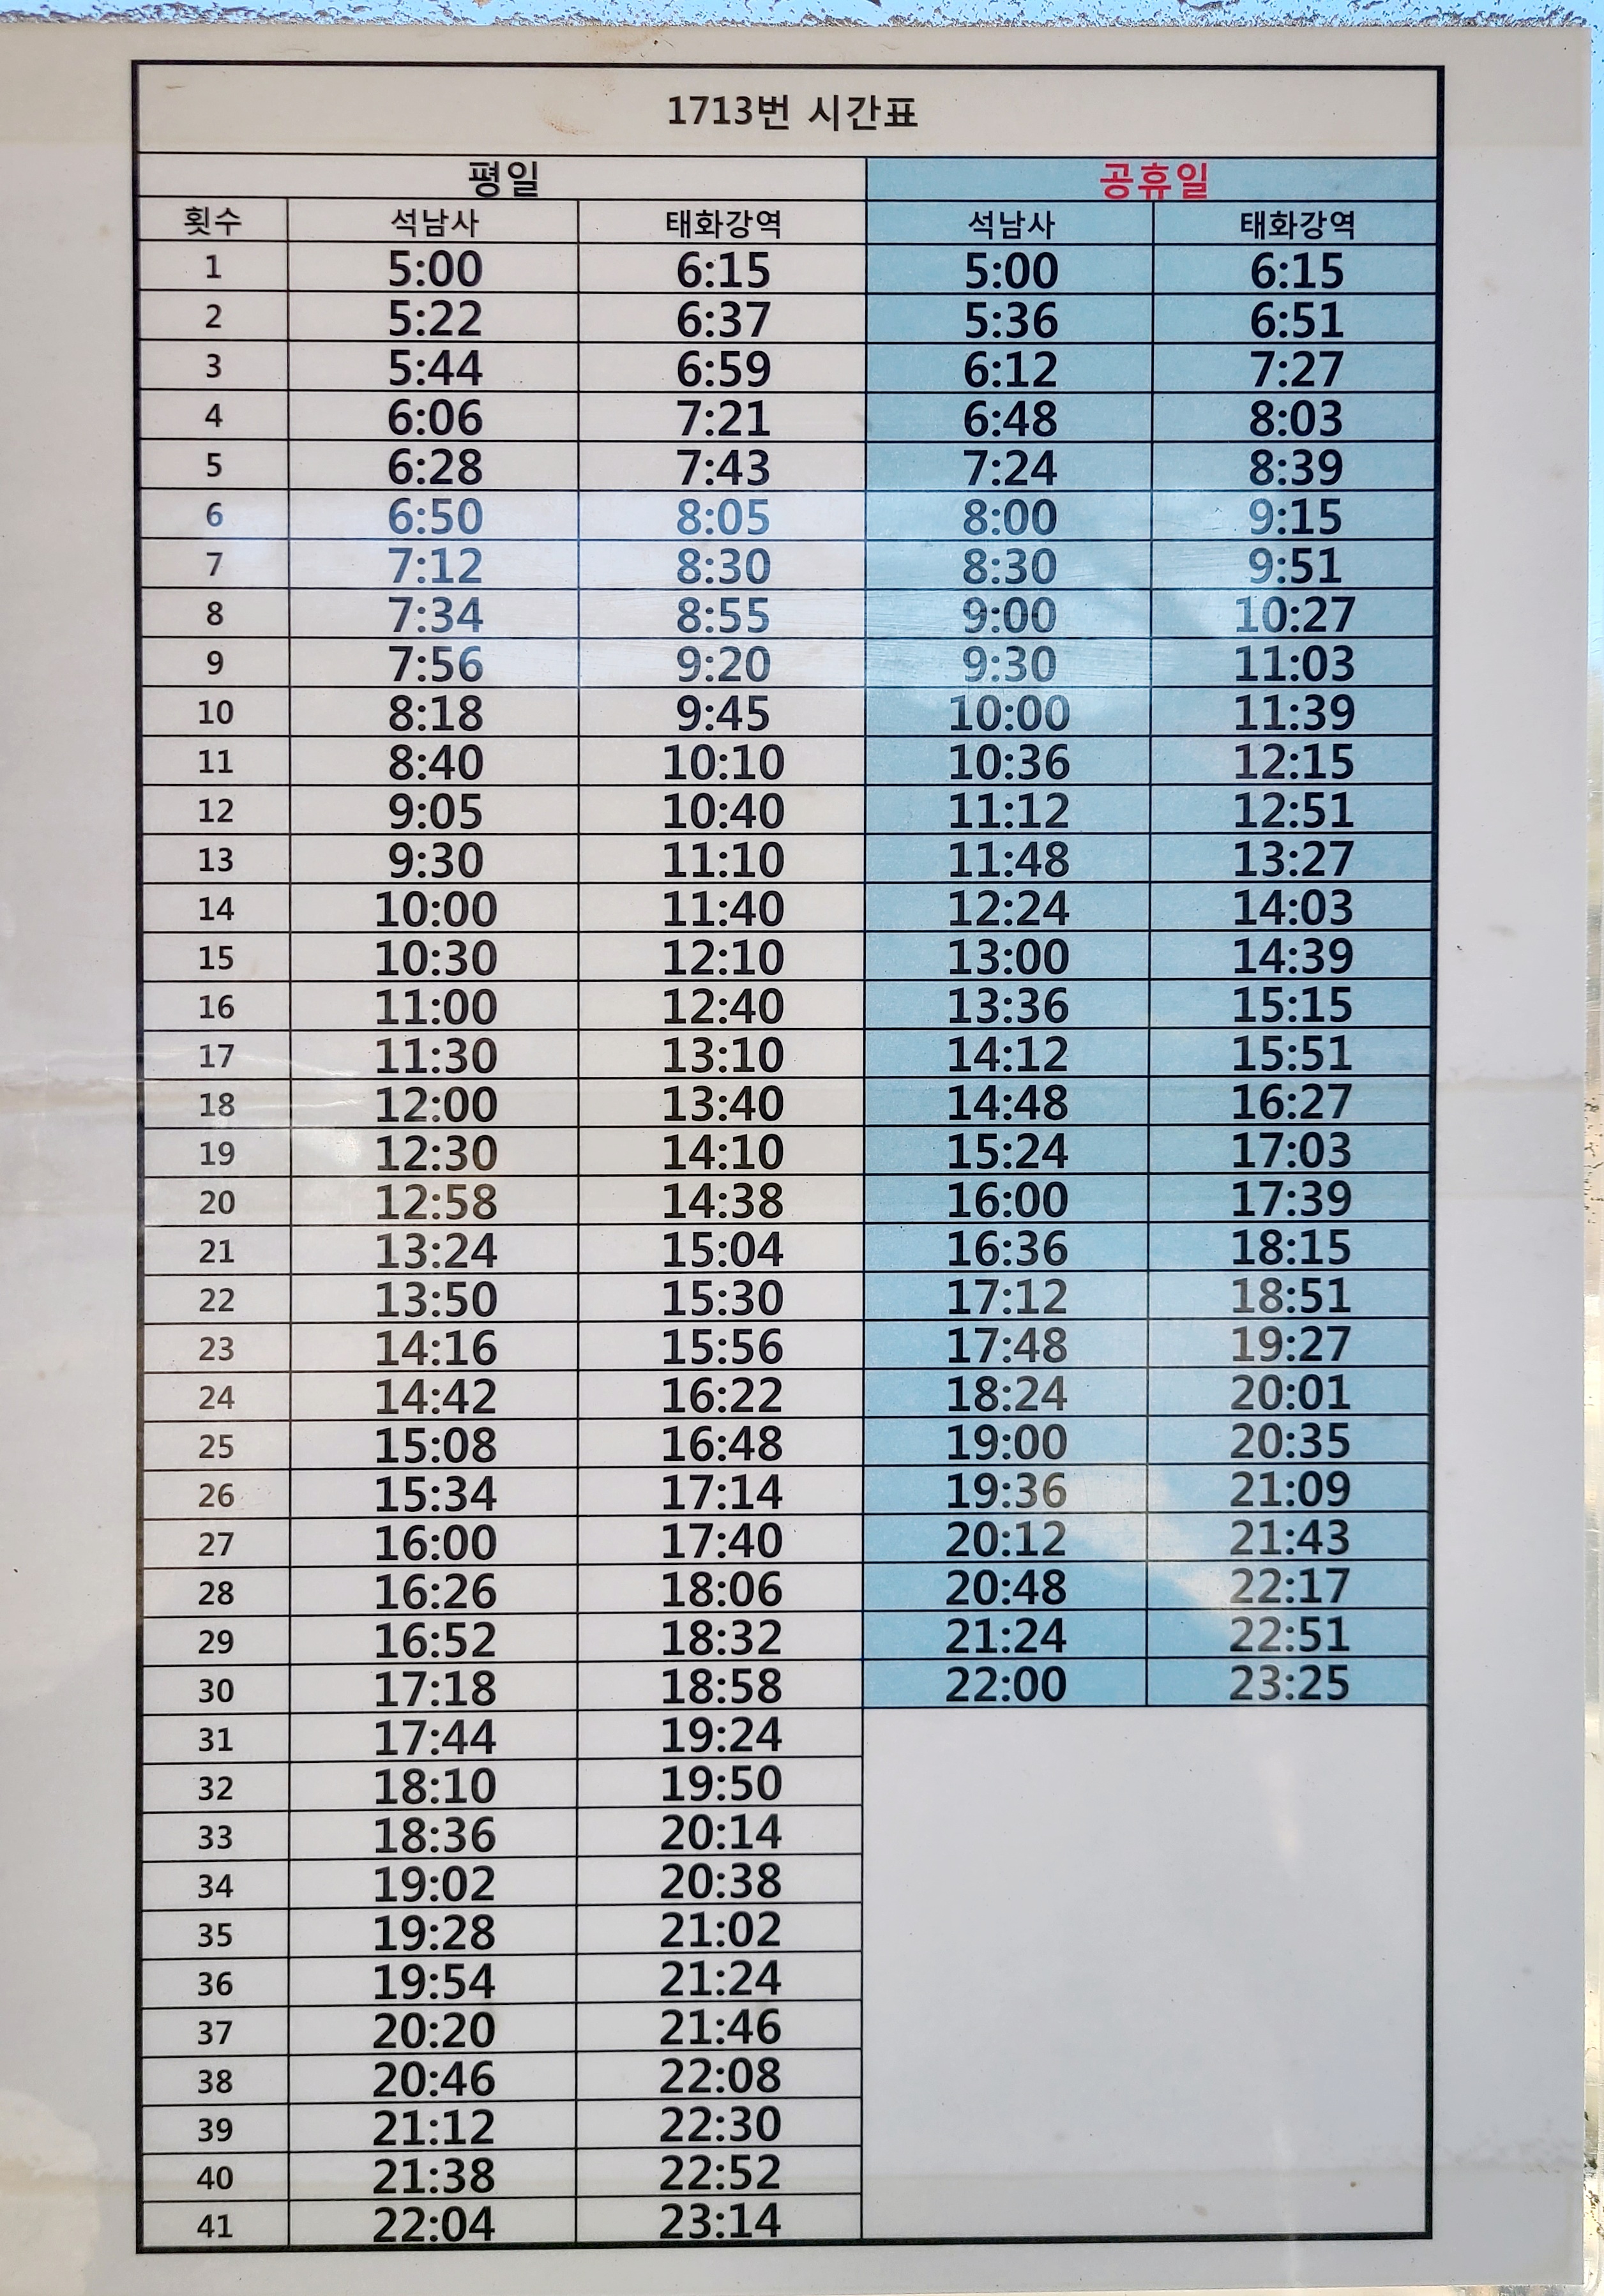 1713번 시간표
평일 공휴일
횟수 석남사 태화강역 석남사 태화강역
1 5:00 6:15 5:00 6:15
2 5:22 6:37 5:36 6:51
3 5:44 6:59 6:12 7:27
4 6:06 7:21 6:48 8:03
5 6:28 7:43 7:24 8:39
6 6:50 8:05 8:00 9:15
7 7:12 8:30 8:30 9:51
8 7:34 8:55 9:00 10:27
9 7:56 9:20 9:30 11:03
10 8:18 9:45 10:00 11:39
11 8:40 10:10 10:36 12:15
12 9:05 10:40 11:12 12:51
13 9:30 11:10 11:48 13:27
14 10:00 11:40 12:24 14:03
15 10:30 12:10 13:00 14:39
16 11:00 12:40 13:36 15:15
17 11:30 13:10 14:12 15:51
18 12:00 13:40 14:48 16:27
19 12:30 14:10 15:24 17:03
20 12:58 14:38 16:00 17:39
21 13:24 15:04 16:36 18:15
22 13:50 15:30 17:12 18:51
23 14:16 15:56 17:48 19:27
24 14:42 16:22 18:24 20:01
25 15:08 16:48 19:00 20:35
26 15:34 17:14 19:36 21:09
27 16:00 17:40 20:12 21:43
28 16:26 18:06 20:48 22:17
29 16:52 18:32 21:24 22:51
30 17:18 18:58 22:00 23:25
31 17:44 19:24
32 18:10 19:50
33 18:36 20:14
34 19:02 20:38
35 19:28 21:02
36 19:54 21:24
37 20:20 21:46
38 20:46 22:08
39 21:12 22:30
40 21:38 22:52
41 22:04 23:14